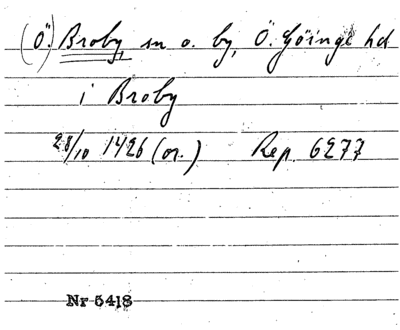 (Ö.) Broby, sn o. by, Ö. Göinge hd
i Broby
28/10 1426 (or.) Rep. 6277
Nr 5418